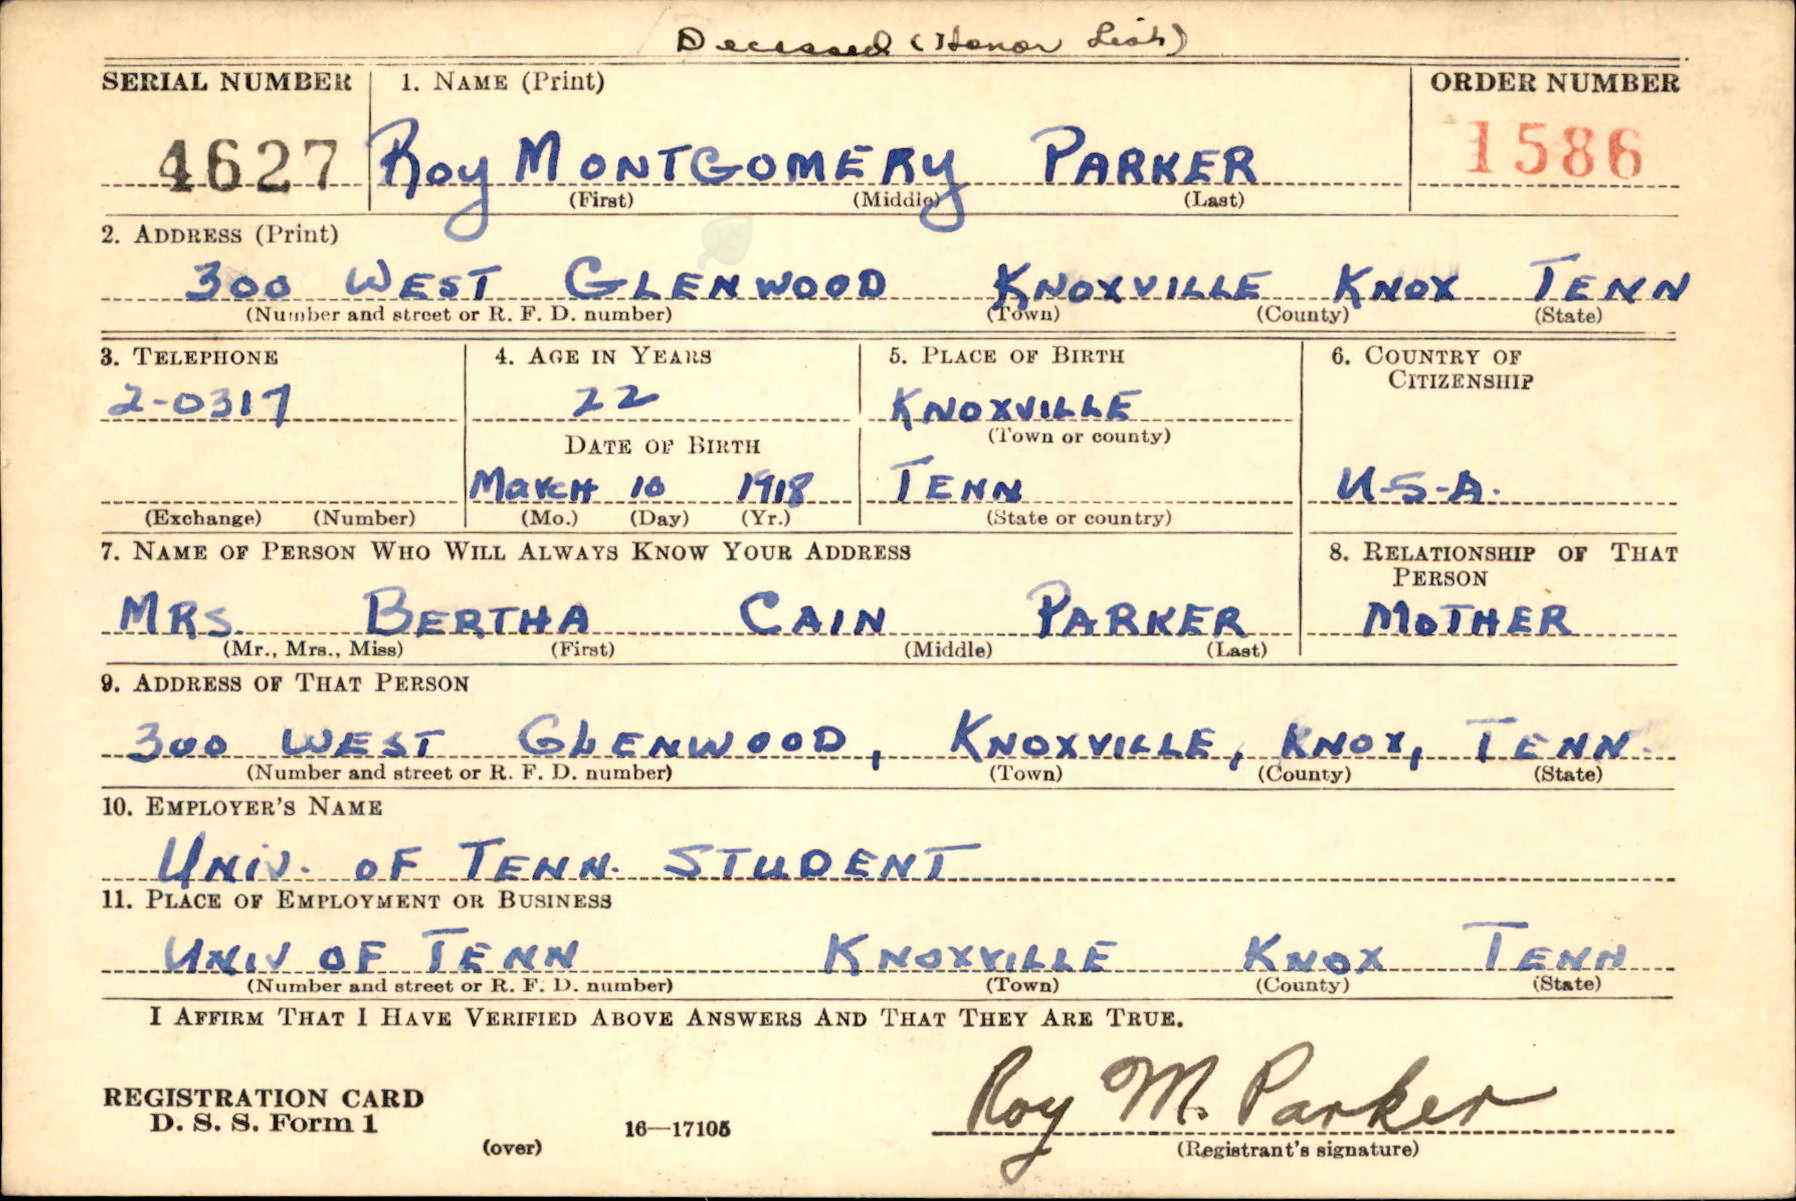 Deceased (Honor List)
SERIAL NUMBER 1. NAME (Print) ORDER NUMBER
4627 Roy MONTGOMERY PARKER 1586
(First) (Middle) (Last)
2. ADDRESS (Print)
300 WEST GLENWOOD KNOXVILLE KNOX TENN
(Number and street or R. F. D. number) (Town) (County) (State)
3. TELEPHONE 4. AGE IN YEARS 5. PLACE OF BIRTH 6. COUNTRY OF
CITIZENSHIP
2-0317 22 KNOXVILLE
(Town or county)
DATE OF BIRTH
MARCH 10 1918 TENN U-S-A.
(Exchange) (Number) (Mo.) (Day) (Yr.) (State or country)
7. NAME OF PERSON WHO WILL ALWAYS KNOW YOUR ADDRESS 8. RELATIONSHIP OF THAT
PERSON
MRS. BERTHA CAIN PARKER MOTHER
(Mr., Mrs., Miss) (First) (Middle) (Last)
9. ADDRESS OF THAT PERSON
300 WEST GLENWOOD, KNOXVILLE, KNOX, TENN.
(Number and street or R. F. D. number) (Town) (County) (State)
10. EMPLOYER'S NAME
UNIV. OF TENN. STUDENT
11. PLACE OF EMPLOYMENT OR BUSINESS
UNIV OF TENN KNOXVILLE KNOX TENN
(Number and street or R. F. D. number) (Town) (County) (State)
I AFFIRM THAT I HAVE VERIFIED ABOVE ANSWERS AND THAT THEY ARE TRUE.
REGISTRATION CARD
D. S. S. Form 1
(over) 16—17105
Roy M. Parker
(Registrant's signature)